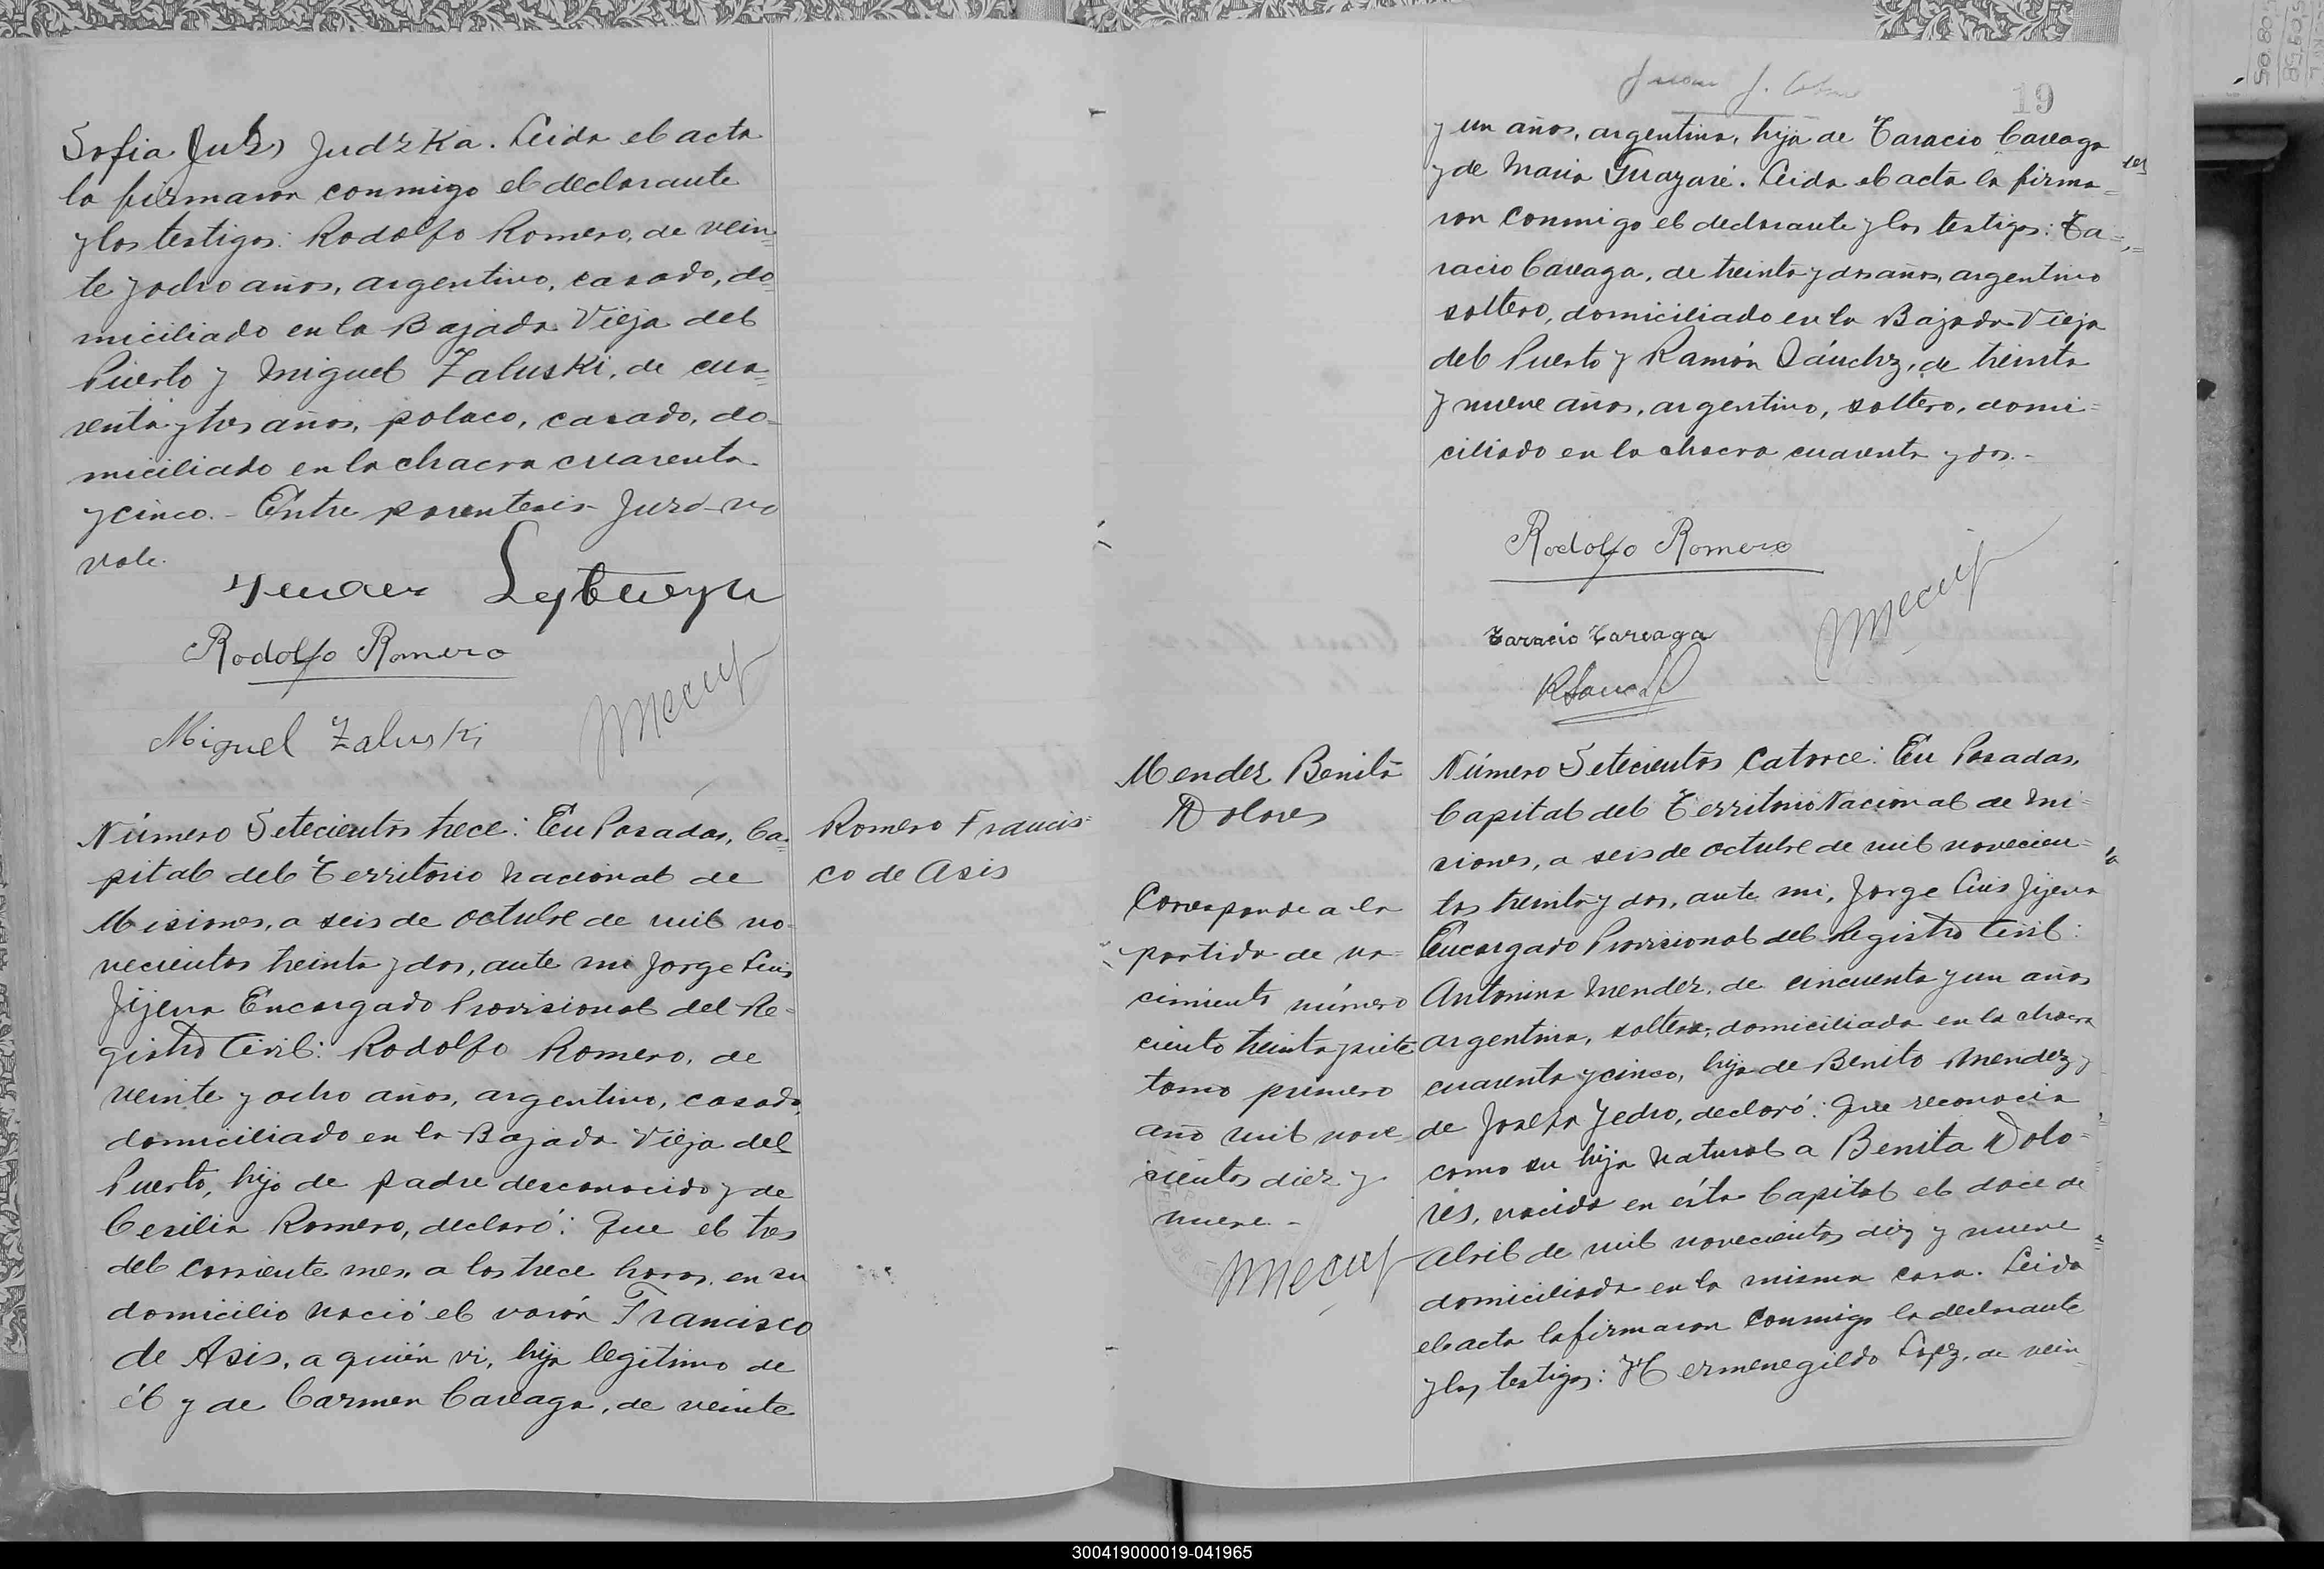 Sofia Judzka. Leida el acta
la firmaron conmigo el declarante
y los testigos: Rodolfo Romero, de vein=
te y ocho años, argentino, casado, do=
miciliado en la Bajada Vieja del
Puerto y Miguel Zaluski, de cua=
renta y tres años, polaco, casado, do=
miciliado en la chacra cuarenta
y cinco.- Entre parentesis- Juzd- no
vale.
Rodolfo Romero
Miguel Zaluski
Número Setecientos trece: En Posadas, Ca=
pital del Territorio Nacional de
Misiones, a seis de octubre de mil no=
vecientos treinta y dos, ante mi Jorge Luis
Jijena Encargado Provisional del Re=
gistro Civil: Rodolfo Romero, de
veinte y ocho años, argentino, casado,
domiciliado en la Bajada Vieja del
Puerto, hijo de padre desconocido y de
Cesilia Romero, declaró: Que el tres
del corriente mes, a las trece horas, en su
domicilio nació el varón Francisco
de Asis, a quién vi, hijo legitimo de
él y de Carmen Careaga, de veinte
Romero Francis=
co de Asis
19
y un años, argentina, hija de Taracio Careaga
y de Maria Guayaré. Leida el acta la firma=
ron conmigo el declarante y los testigos: Ta=
racio Careaga, de treinta y dos años, argentino
soltero, domiciliado en la Bajada Vieja
del Puerto y Ramón Sánchz, de treinta
y nueve años, argentino, soltero, domi=
ciliado en la chacra cuarenta y dos.-
Rodolfo Romero
Taracio Careaga
Mendez Benita
Dolores
Corresponde a la
partida de na=
cimiento número
ciento treinta y siete
tomo primero
año mil nove
cientos diez y
nueve.-
Número Setecientos catorce: En Posadas,
Capital del Territorio Nacional de Mi=
siones, a seis de octubre de mil novecien=
tos treinta y dos, ante mi, Jorge Luis Jijena
Encargado Provisional del Registro Civil:
Antonina Mendez, de cincuenta y un años
argentina, soltera, domiciliada en la chacra
cuarenta y cinco, hija de Benito Mendez y
de Josefa Yedro, declaró: Que reconocia
como su hija natural a Benita Dolo=
res, nacida en ésta Capital el doce de
Abril de mil novecientos diez y nueve
domiciliada en la misma casa. Leida
el acta la firmaron conmigo la declarante
y los testigos: Hermenegildo Lopez, de vein
300419000019-041965